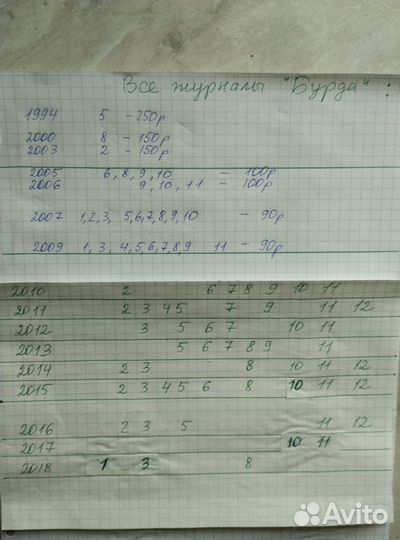 Все журналы "Бурда" :
1994 5 - 250р
2000 8 - 150р
2003 2 - 150р
2005 6, 8, 9, 10 - 100р
2006 9, 10, 11 - 100р
2007 1, 2, 3, 5, 6, 7, 8, 9, 10 - 90р
2009 1, 3, 4, 5, 6, 7, 8, 9 11 - 90р
2010 2 6 7 8 9 10 11
2011 2 3 4 5 7 9 11 12
2012 3 5 6 7 10 11
2013 5 6 7 8 9 11
2014 2 3 8 10 11 12
2015 2 3 4 5 6 8 10 11 12
2016 2 3 5 11 12
2017 10 11
2018 1 3 8
Avito